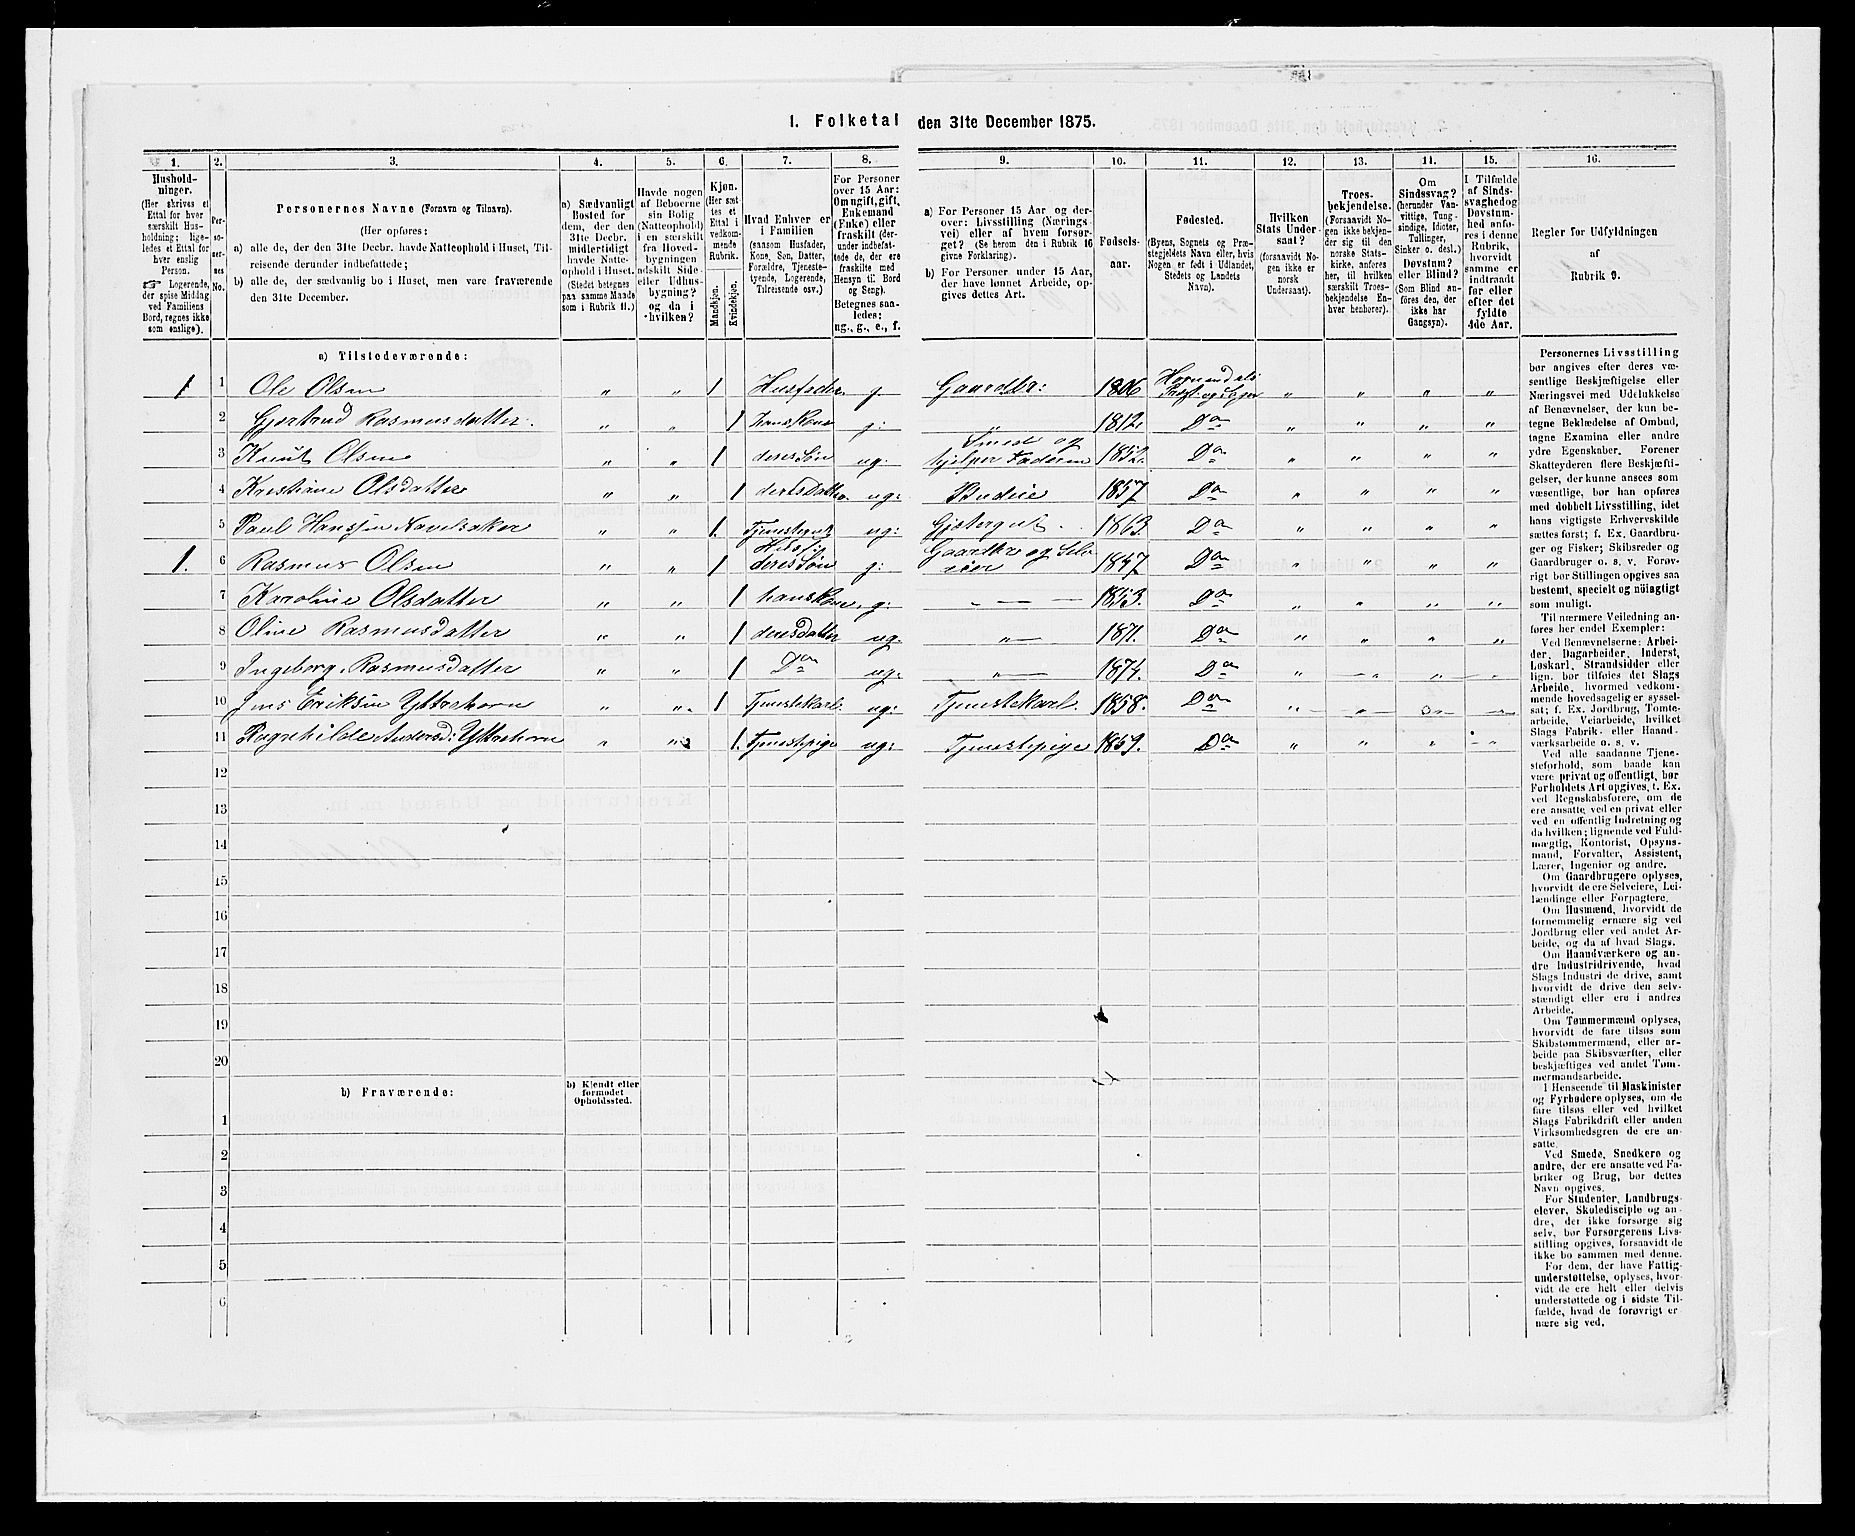 1. Folketal den 31te December 1875.
1. 2. 3. 4. 5. 6. 7. 8. 9. 10. 11. 12. 13. 14. 15. 16.
Hushold-
ninger.
(Her skrives et
Ettal for hver
særskilt Hus-
holdning; lige-
ledes et Ettal for
hver enslig
Person.
☞ Logerende,
der spise Middag
ved Familiens
Bord, regnes ikke
som enslige).
Per-
so-
ner-
nes
No.
Personernes Navne (Fornavn og Tilnavn).
(Her opføres:
a) alle de, der den 31te Decbr. havde Natteophold i Huset, Til-
reisende derunder indbefattede;
b) alle de, der sædvanlig bo i Huset, men vare fraværende
den 31te December.
a) Sædvanligt
Bosted for
dem, der den
31te Decbr.
midlertidigt
havde Natte-
ophold i Huset.
(Stedet betegnes
paa samme Maade
som i Rubrik 11.)
Havde nogen
af Beboerne
sin Bolig
(Natteophold)
i en særskilt
fra Hoved-
bygningen
adskilt Side-
eller Udhus-
bygning?
og da i
hvilken?
Kjøn.
(Her sæt-
tes et
Ettal i
vedkom-
mende
Rubrik.
Mandkjøn.
Kvindekjøn.
Hvad Enhver er
i Familien
(saasom Husfader,
Kone, Søn, Datter,
Forældre, Tjeneste-
tyende, Logerende,
Tilreisende osv.)
For Personer
over 15 Aar:
Om ugift, gift,
Enkemand
(Enke) eller
fraskilt (der-
under indbefat-
tede de, der ere
fraskilte med
Hensyn til Bord
og Seng).
Betegnes saa-
ledes:
ug., g., e., f.
a) For Personer 15 Aar og der-
over: Livsstilling (Nærings-
vei) eller af hvem forsør-
get? (Se herom den i Rubrik 16
givne Forklaring).
b) For Personer under 15 Aar,
der have lønnet Arbeide, op-
gives dettes Art.
Fødsels-
aar.
Fødested.
(Byens, Sognets og Præ-
stegjeldets Navn eller, hvis
Nogen er født i Udlandet,
Stedets og Landets
Navn).
Hvilken
Stats Under-
saat?
(forsaavidt No-
gen ikke er
norsk
Undersaat).
Troes-
bekjendelse.
(Forsaavidt No-
gen ikke bekjen-
der sig til den
norske Stats-
kirke, anføres
her, til hvilken
særskilt Troes-
bekjendelse En-
hver henhører).
Om
Sindssvag?
(herunder Van-
vittige, Tung-
sindige, Idioter,
Tullinger,
Sinker o. desl.)
Døvstum?
eller Blind?
(Som Blind an-
føres den, der
ikke har
Gangsyn).
I Tilfælde
af Sinds-
svaghed og
Døvstum-
hed anfø-
res i denne
Rubrik,
hvorvidt
samme er
indtraadt
før eller
efter det
fyldte
4de Aar.
Regler for Udfyldningen
af
Rubrik 9.
a) Tilstedeværende:
1 1 Ole Olsen " " 1 Husfader g. Gaardbr: 1806 " " " "
2 Gjertrud Rasmusdatter. " " 1 hans Kone g: " 1812. Do " " " "
3 Knut Olsen " " 1 deres Søn ug. Smed og hjelper Faderen 1852. Do " " " "
4 Kristiane Olsdatter " " 1 deres Datter ug: Budeie 1857 Do " " " "
5 Paul Hansen " " 1. Tjenestegut ug: Gjetergut. 1863. Do " " " "
1. 6 Rasmus Olsen " " 1 Husf. deres Søn g: Gaardbr og Selveier 1847 Do " " " "
7 Karoline Olsdatter " " 1 hans Kone g: " 1853. Do " " " "
8 Oline Rasmusdatter " " 1 deres datter ug. " 1871. Do " " " "
9 Ingeborg Rasmusdatter " " 1 Do ug. " 1874. Do " " " "
10 Jens Eriksen Ytrehorn " " 1 Tjenestekarl. ug: Tjenestekarl. 1858. Do " " " "
11 Ragnhilde Andersd: Ytrehorn " " 1. Tjenestepige ug: Tjenestepige 1859. Do " " " "
12
13
14
15
16
17
18
19
20
b) Fraværende:
b) Kjendt eller
formodet
Opholdssted.
1
2
3
4
5
6
Personernes Livsstilling
bør angives efter deres væ-
sentlige Beskjæftigelse eller
Næringsvei med Udelukkelse
af Benævnelser, der kun be-
tegne Beklædelse af Ombud,
tagne Examina eller andre
ydre Egenskaber. Forener
Skatteyderen flere Beskjæfti-
gelser, der kunne ansees som
væsentlige, bør han opføres
med dobbelt Livsstilling, idet
hans vigtigste Erhvervskilde
sættes først; f. Ex. Gaardbru-
ger og Fisker; Skibsreder og
Gaardbruger o. s. v. Forøv-
rigt bør Stillingen opgives saa
bestemt, specielt og nøiagtigt
som muligt.
Til nærmere Veiledning an-
føres her endel Exempler:
Ved Benævnelserne: Arbei-
der, Dagarbeider, Inderst,
Løskarl, Strandsidder eller
lign. bør tilføies det Slags
Arbeide, hvormed vedkom-
mende hovedsagelig er syssel-
sat; f. Ex. Jordbrug, Tomte-
arbeide, Veiarbeide, hvilket
Slags Fabrik- eller Haand-
værksarbeide o. s. v.
Ved alle saadanne Tjene-
steforhold, som baade kan
være privat og offentligt, bør
Forholdets Art opgives, t. Ex.
ved Regnskabsførere, om de
ere ansatte ved en privat eller
ved en offentlig Indretning og
da hvilken; lignende ved Fuld-
mægtig, Kontorist, Opsyns-
mand, Forvalter, Assistent,
Lærer, Ingeniør og andre.
Om Gaardbrugere oplyses,
hvorvidt de ere Selveiere, Lei-
lændinge eller Forpagtere.
Om Husmænd, hvorvidt de
fornemmelig ernære sig ved
Jordbrug eller ved andet Ar-
beide, og da af hvad Slags.
Om Haandværkere og an-
dre Industridrivende, hvad
Slags Industri de drive, samt
hvorvidt de drive den selv-
stændigt eller ere i andres
Arbeide.
Om Tømmermænd oplyses,
hvorvidt de fare tilsøs som
Skibstømmermænd, eller ar-
beide paa Skibsværfter, eller
beskjæftiges ved andet Tøm-
mermandsarbeide.
I Henseende til Maskinister
og Fyrbødere oplyses, om de
fare tilsøs eller ved hvilket
Slags Fabrikdrift eller anden
Virksomhedsgren de ere an-
satte.
Ved Smede, Snedkere og
andre, der ere ansatte ved Fa-
briker og Brug, bør dettes
Navn opgives.
For Studenter, Landbrugs-
elever, Skoledisciple og an-
dre, der ikke forsørge sig
selv, bør Forsørgerens Livs-
stilling opgives, forsaavidt de
ikke bo sammen med denne.
For dem, der have Fattig-
understøttelse, oplyses, hvor-
vidt de ere helt eller delvis
understøttede og i sidste Til-
fælde, hvad de forøvrigt er-
nære sig ved.